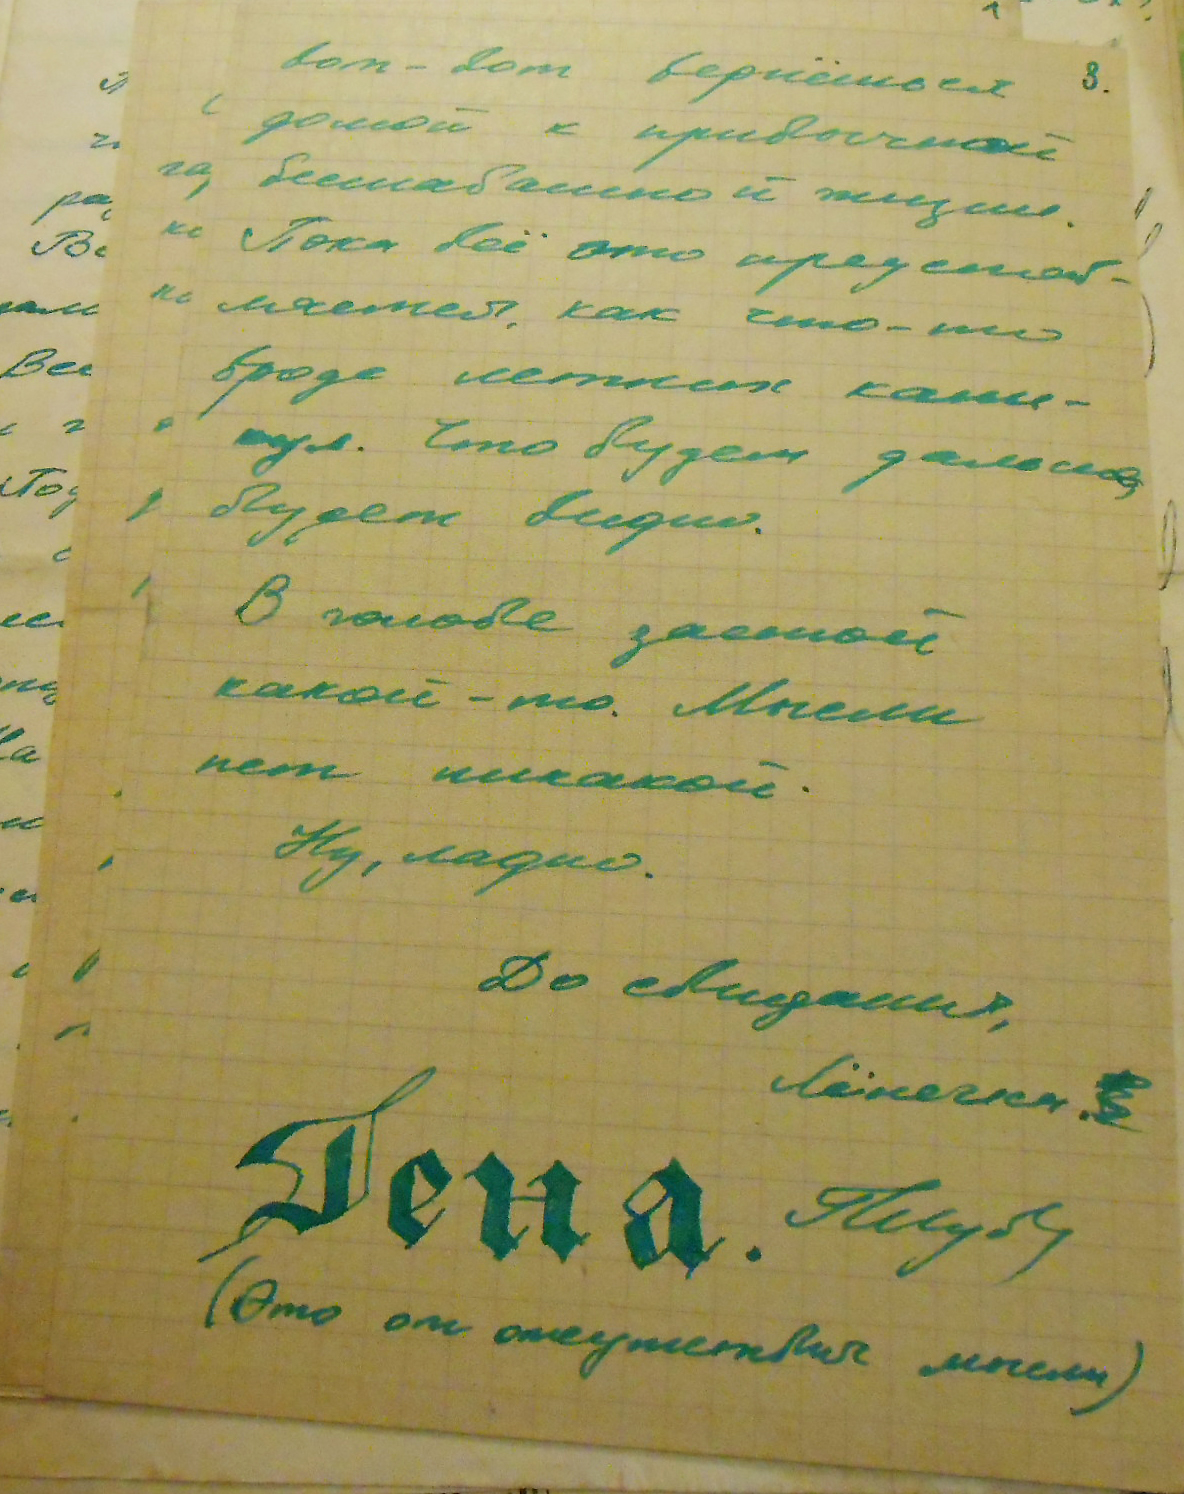 3.
вот-вот вернёшься
домой к привычной
бесшабашной жизни.
Пока всё это представ-
ляется, как что-то
вроде летних кани-
кул. Что будет дальше,
будет видно.
В голове застой
какой-то. Мысли
нет никакой.
Ну, ладно.
До свидания,
Лёнечка.
Гена.
(Это от отсутствия мысли)